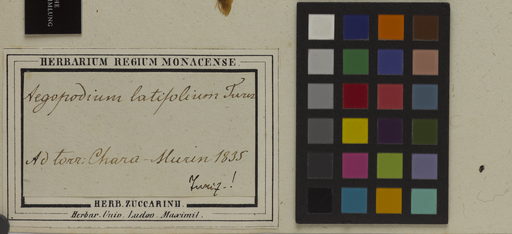 HE
MLUNG
HERBARIUM REGIUM MONACENSE.
Aegopodium latifolium Turcz
Ad torr: Chara-Murin 1835
Turcz.!
HERB. ZUCCARINII.
Herbar. Univ. Ludov. Maximil.